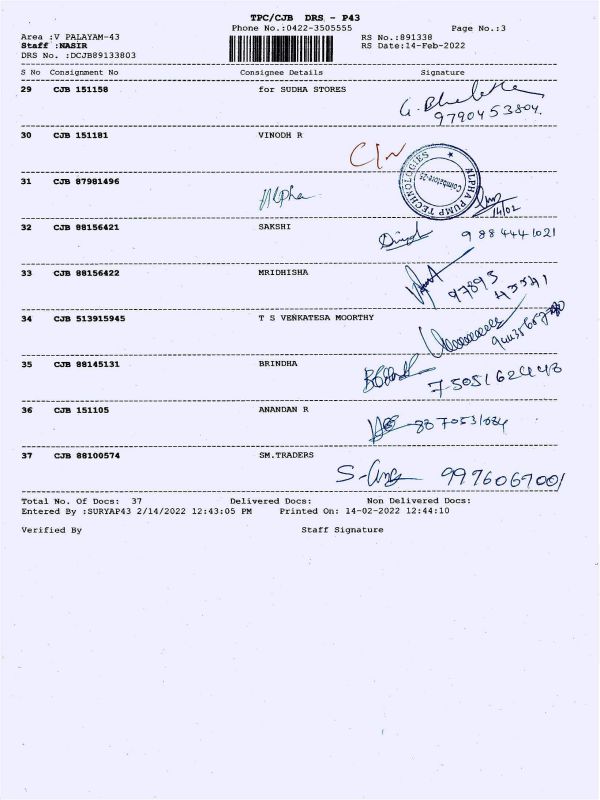 TPC/CJB DRS - P43
Phone No.:0422-3505555 Page No.:3
Area :V PALAYAM-43 RS No.:891338
Staff :NASIR RS Date:14-Feb-2022
DRS No. :DCJB89133803
S No Consignment No Consignee Details Signature
29 CJB 151158 for SUDHA STORES
9790453804.
30 CJB 151181 VINODH R
ALPHA PUMP TECHNOLOGIES
Coimbatore-25
31 CJB 87981496 Alpha
14/02
32 CJB 88156421 SAKSHI
9884441021
33 CJB 88156422 MRIDHISHA
97893
45541
34 CJB 513915945 T S VENKATESA MOORTHY
35 CJB 88145131 BRINDHA
7505162448
36 CJB 151105 ANANDAN R
37 CJB 88100574 SM.TRADERS
9976067001
Total No. Of Docs: 37 Delivered Docs: Non Delivered Docs:
Entered By :SURYAP43 2/14/2022 12:43:05 PM Printed On: 14-02-2022 12:44:10
Verified By Staff Signature